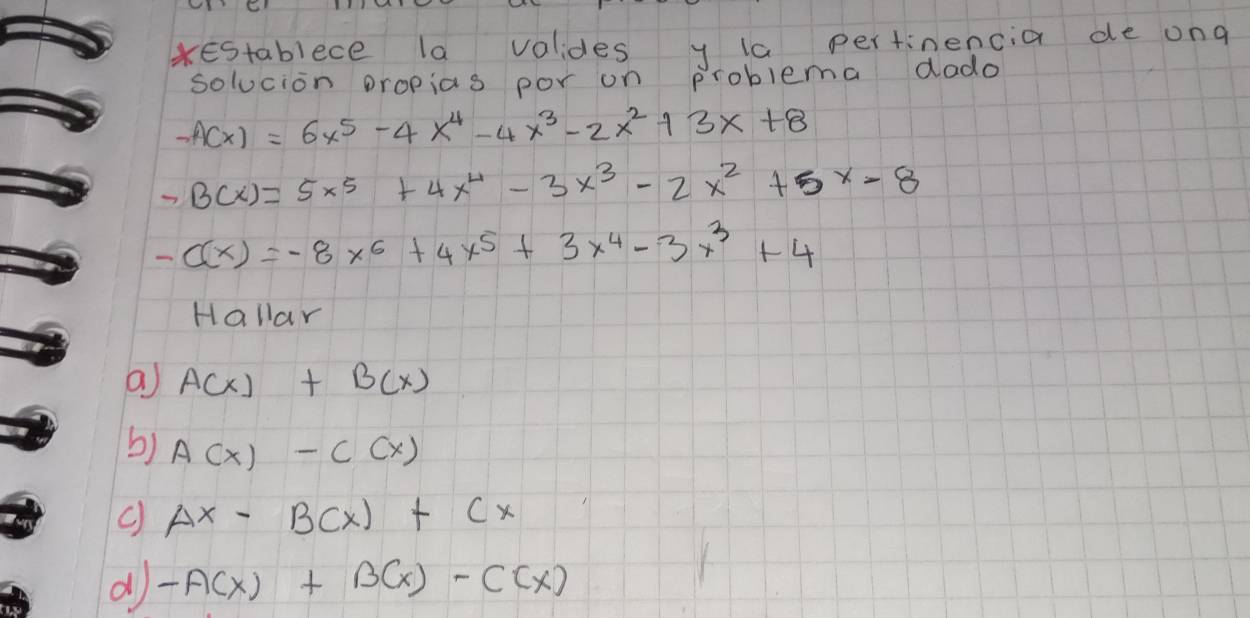 *Establece la valides y la pertinencia de una
solución propias por un problema dado
-A(x) = 6x⁵ - 4x⁴ - 4x³ - 2x² + 3x + 8
- B(x) = 5x⁵ + 4x⁴ - 3x³ - 2x² + 5x - 8
- C(x) = -8x⁶ + 4x⁵ + 3x⁴ - 3x³ + 4
Hallar
a) A(x) + B(x)
b) A(x) - C(x)
c) Ax - B(x) + Cx
d) -A(x) + B(x) - C(x)